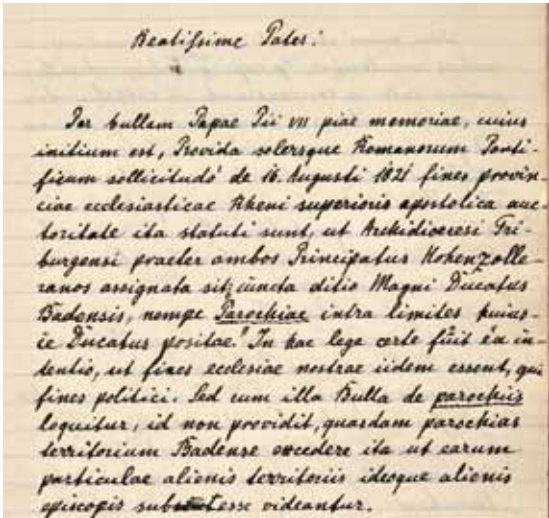 Beatissime Pater!
Per bullam Papae Pii VII piae memoriae, cuius
initium est, Provida solersque Romanorum Ponti-
ficum sollicitudo de 16. Augusti 1821 fines provin-
ciae ecclesiasticae Rheni superioris apostolica auc-
toritate ita statuti sunt, ut Archidioecesi Fri-
burgensi praeter ambos Principatus Hohenzolle-
ranos assignata sit cuncta ditio Magni Ducatus
Badensis, nempe Parochiae intra limites huius-
ce Ducatus positae! In hac lege certe fuit ea in-
tentio, ut fines eclesiae nostrae iidem essent, qui
fines politici. Sed cum illa Bulla de parochiis
loquitur, id non providit, quasdam parochias
territorium Badense excedere ita ut earum
particulae alienis territoriis ideoque alienis
episcopis subesse videantur.